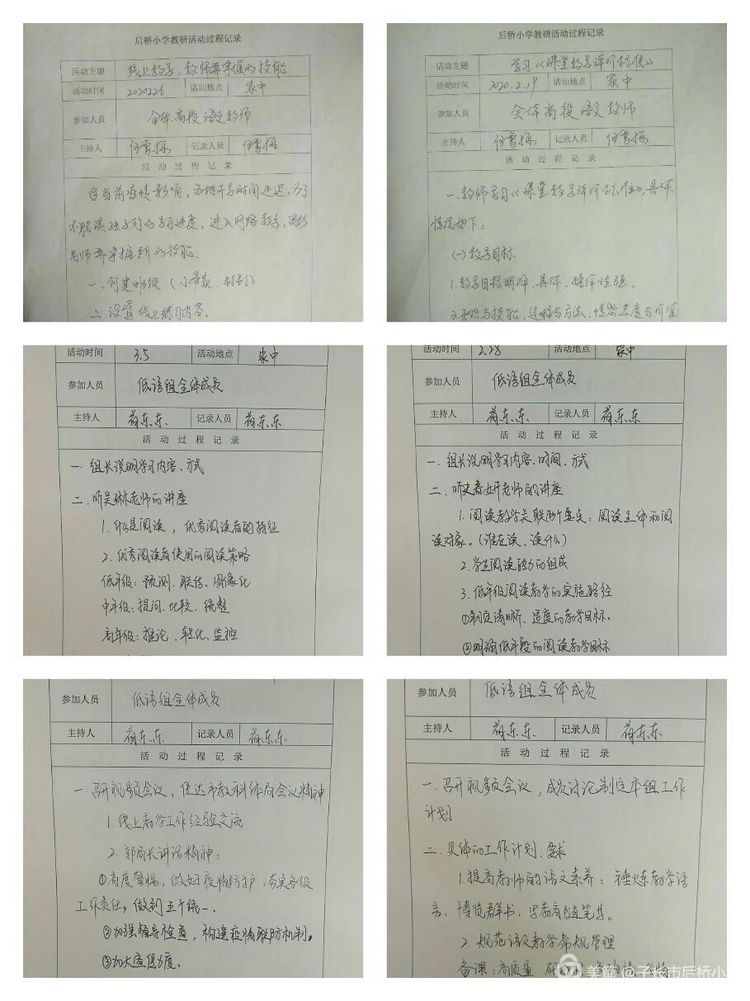 后桥小学教研活动过程记录
活动主题 线上教学，教师要掌握的技能
活动时间 活动地点 家中
参加人员 全体高段语文教师
主持人 记录人员
活动过程记录
受当前疫情影响，各地开学时间延迟，为
不耽误孩子们的学习进度，进入网络教学，
老师要掌握新的技能。
一.创建班级（小管家、钉钉）
二.设置线上练习内容。
后桥小学教研活动过程记录
活动主题 学习《课堂教学评价标准》
活动时间 2020.2.19 活动地点 家中
参加人员 全体高段语文教师
主持人 记录人员
活动过程记录
一.教师学习《课堂教学评价标准》，具体
情况如下：
(一)教学目标
1.教学目标明确、具体、操作性强。
2.知识与技能，过程与方法，情感态度与价值
活动时间 3.5 活动地点 家中
参加人员 低语组全体成员
主持人 东东 记录人员 东东
活动过程记录
一.组长说明学习内容、方式
二.听吴琳老师的讲座
1.什么是阅读，优秀阅读者的特征
2.优秀阅读者使用的阅读策略
低年级：预测、联结、图像化
中年级：提问、比较、
高年级：推论、转化、监控
活动时间 2.28 活动地点 家中
参加人员 低语组全体成员
主持人 东东 记录人员 东东
活动过程记录
一.组长说明学习内容、时间、方式
二.听 老师的讲座
1.阅读教学关联两个要点：阅读主体和阅
读对象。(谁在读、读什么)
2.学生阅读能力的组成
3.低年级阅读教学的实施路径
①制定清晰、适度的教学目标。
②明确低年段的阅读教学目标
参加人员 低语组全体成员
主持人 东东 记录人员 东东
活动过程记录
一.召开视频会议，传达市教科体局会议精神
1.线上教学工作经验交流
2.郭局长讲话精神：
①高度警惕，做好疫情防护，夯实各级
工作责任，做到五个统一.
②加强督导检查，构建疫情联防机制。
③加大 力度。
参加人员 低语组全体成员
主持人 东东 记录人员 东东
活动过程记录
一.召开视频会议，成员讨论制定本组工作
计划
二.具体的工作计划、要求
1.提高教师的语文素养：锤炼教学语
言、博览群书、写教育随笔等。
2.规范语文教学常规管理
备课：高质量
美篇 @子长市后桥小